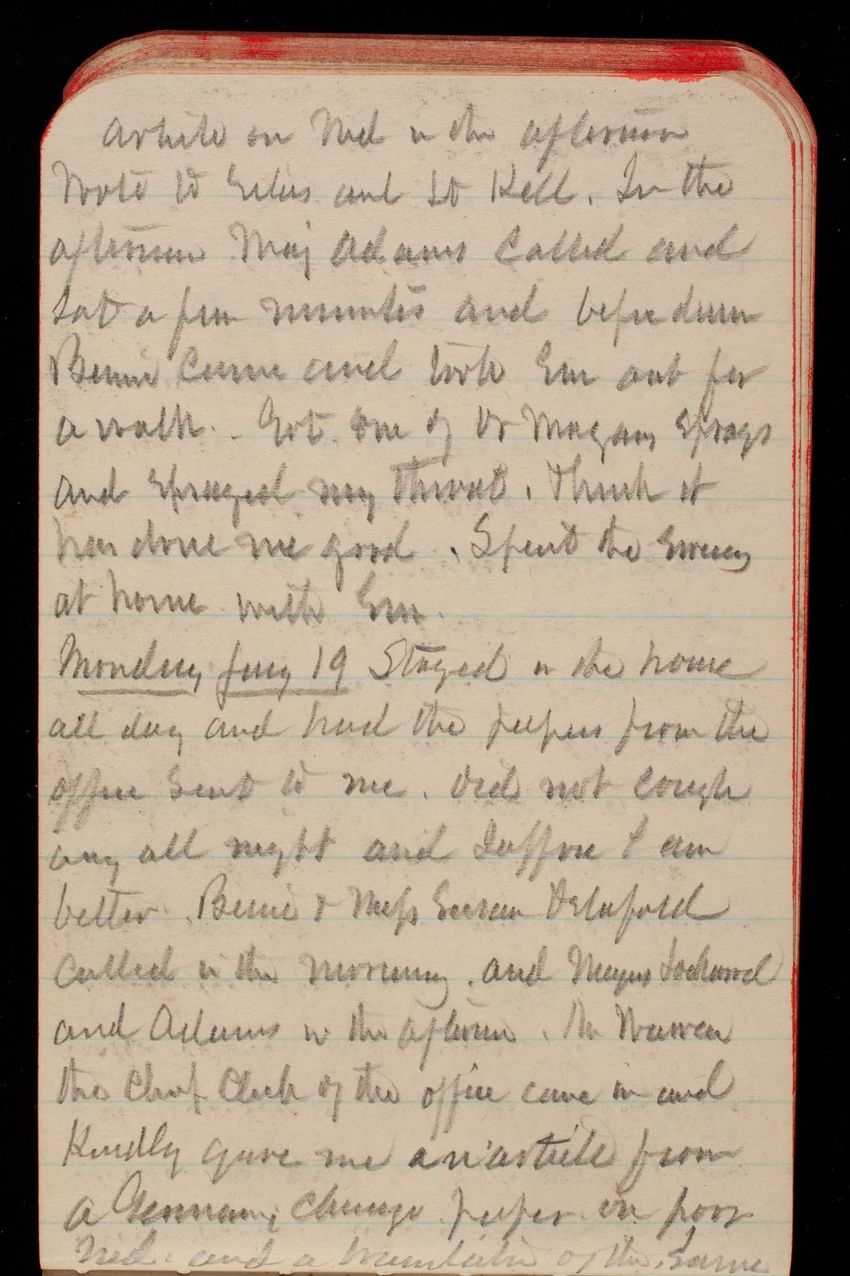 article on Ned in the afternoon
Wrote to Gilus and to Kell. In the
afternoon Maj Adams called and
sat a few minutes and before dinner
Bernie came and took Em out for
a walk. Got one of Dr Magans sprays
and sprayed my throat. Think it
has done me good. Spent the evening
at home with Em.
Monday Jany 19 Stayed in the house
all day and had the papers from the
office sent to me. Did not cough
any all night and suppose I am
better. Bernie & Miss Susan Delafold
called in the morning. and Majors Lockwood
and Adams in the afternoon. Mr Warren
the Chief Clerk of the office came in and
Kindly gave me an article from
a German, Chicago paper on poor
Ned. and a translation of the same